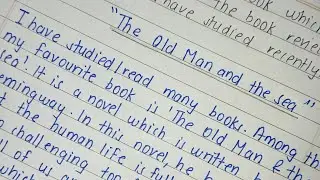 the book which
the book review
have studied recently
"The Old Man and the sea"
I have studied/read many books. Among the
my favourite book is The Old Man & the
sea! It is a novel which is written b
emingway. In this novel he h
t the human life is full
challenging too
ll of us a
which